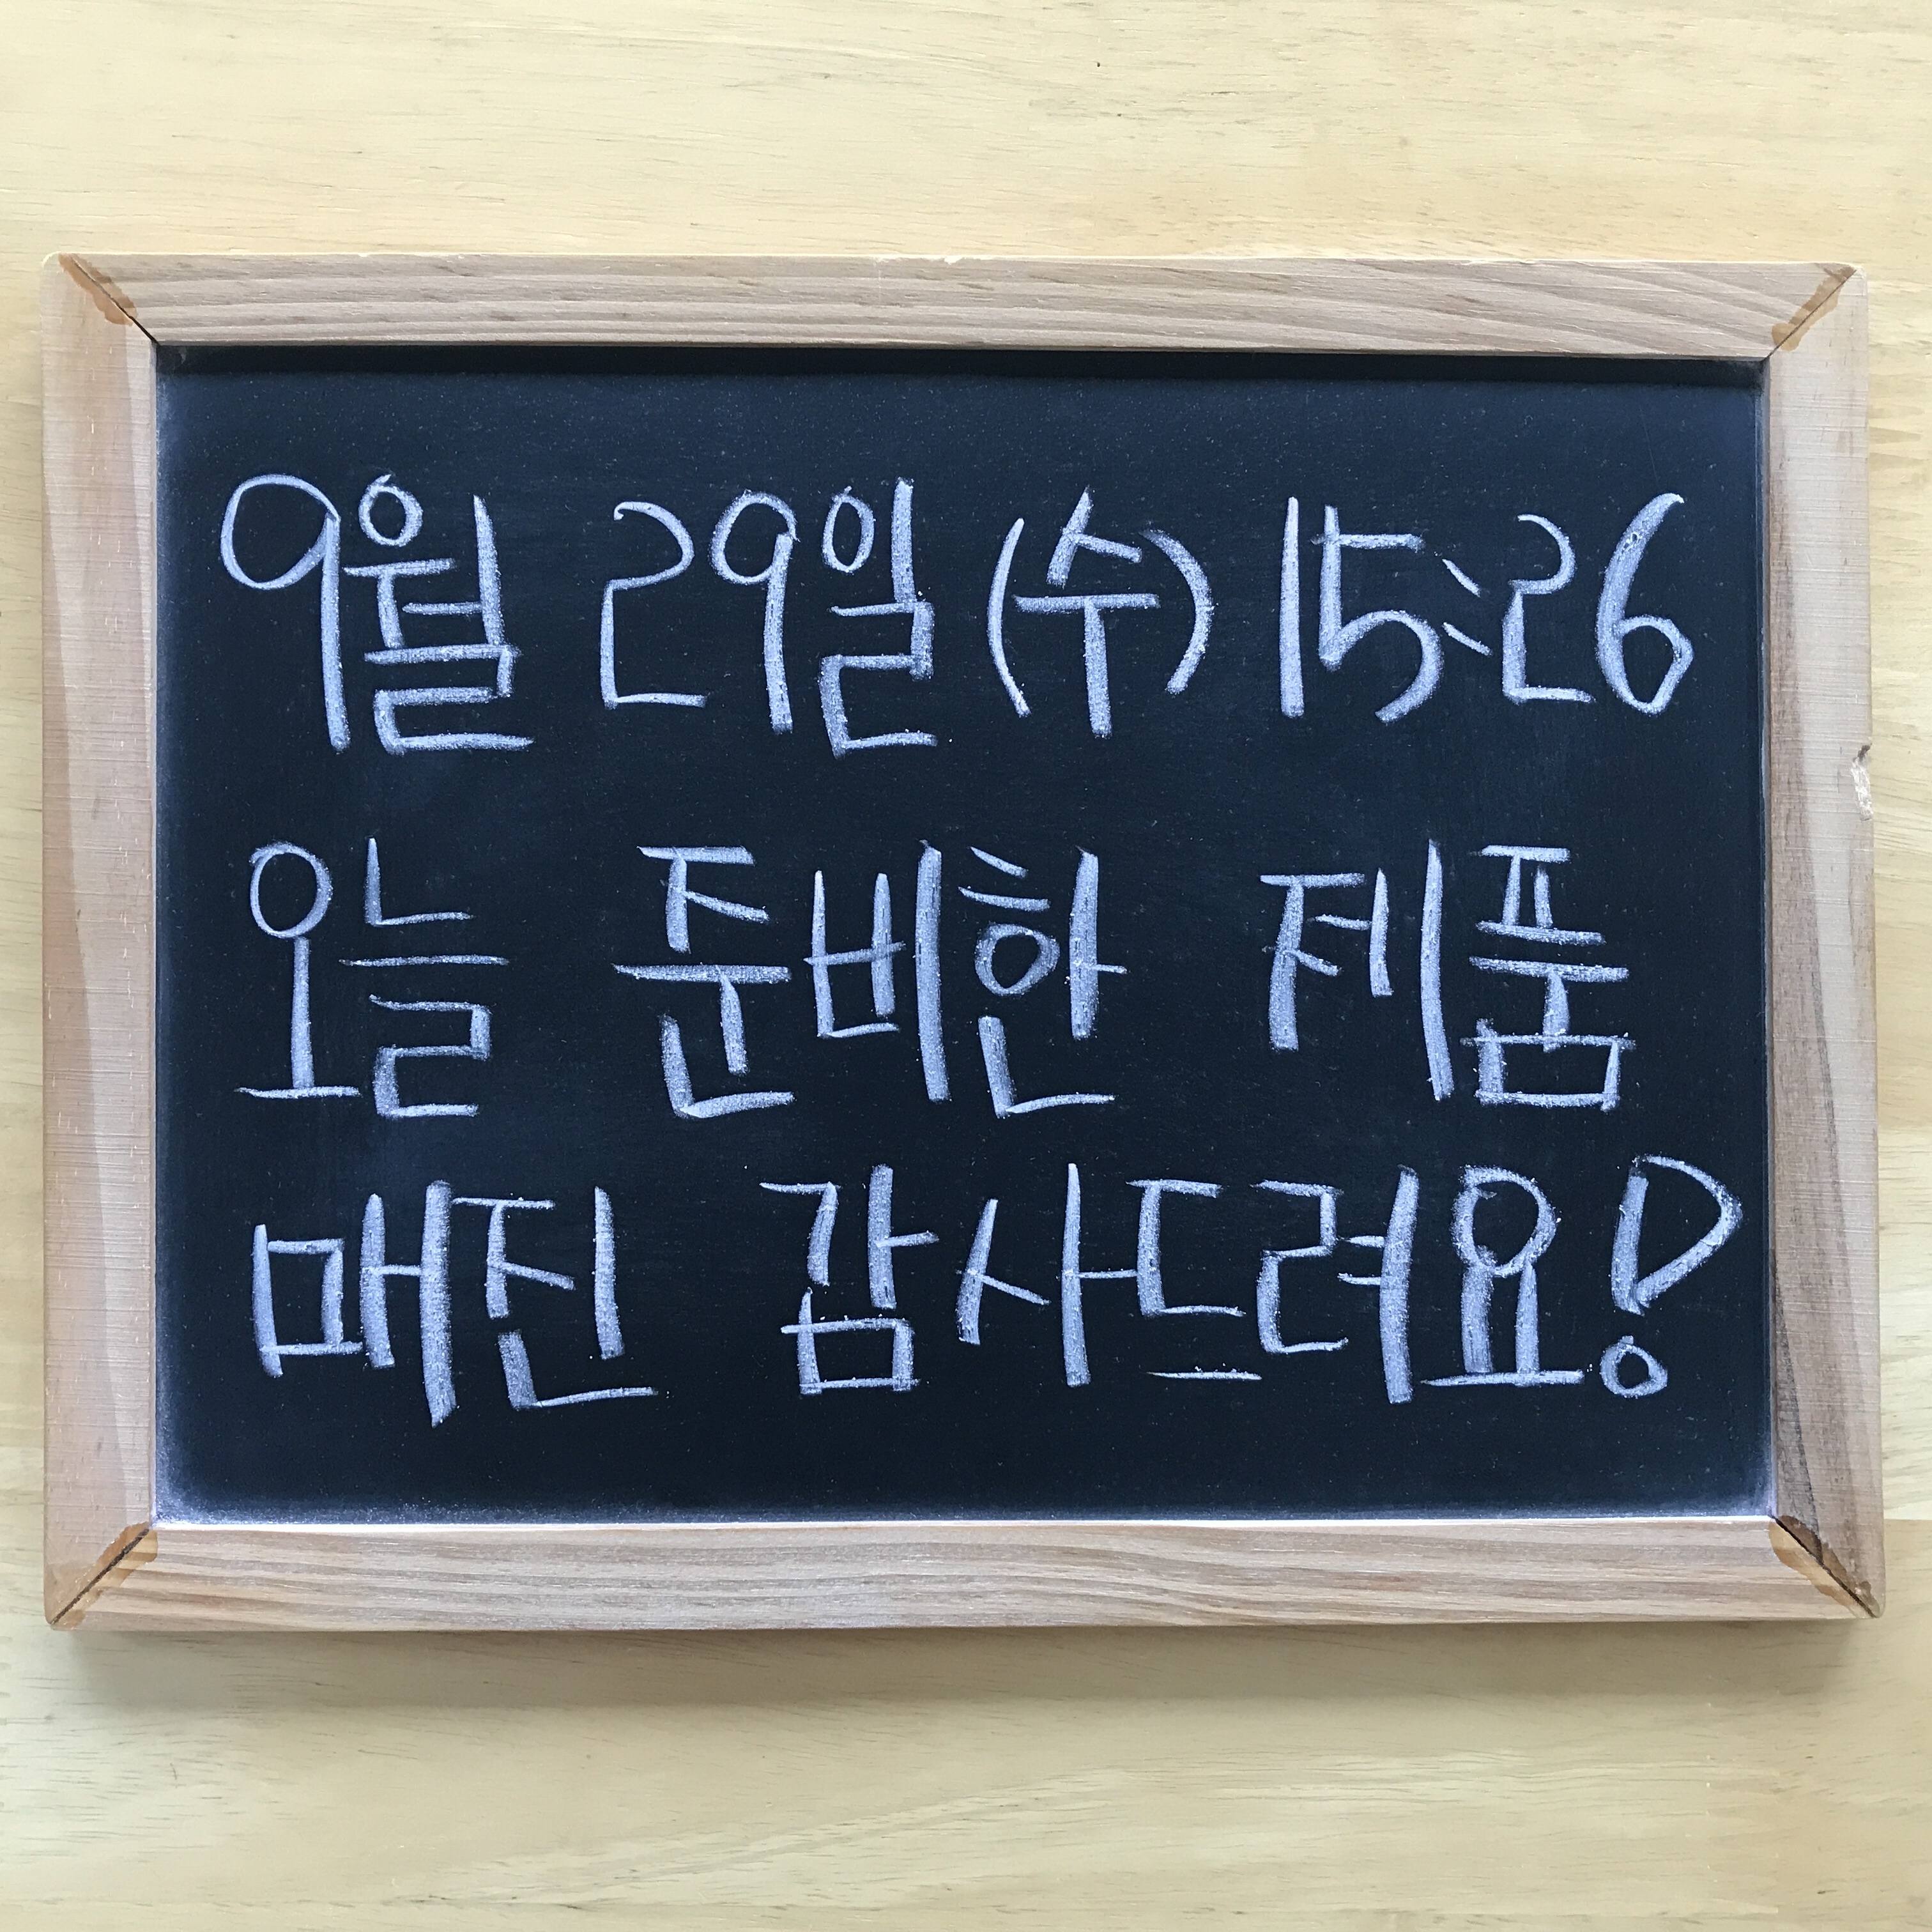 9월 29일(수) 15:26
오늘 준비한 제품
매진 감사드려요!